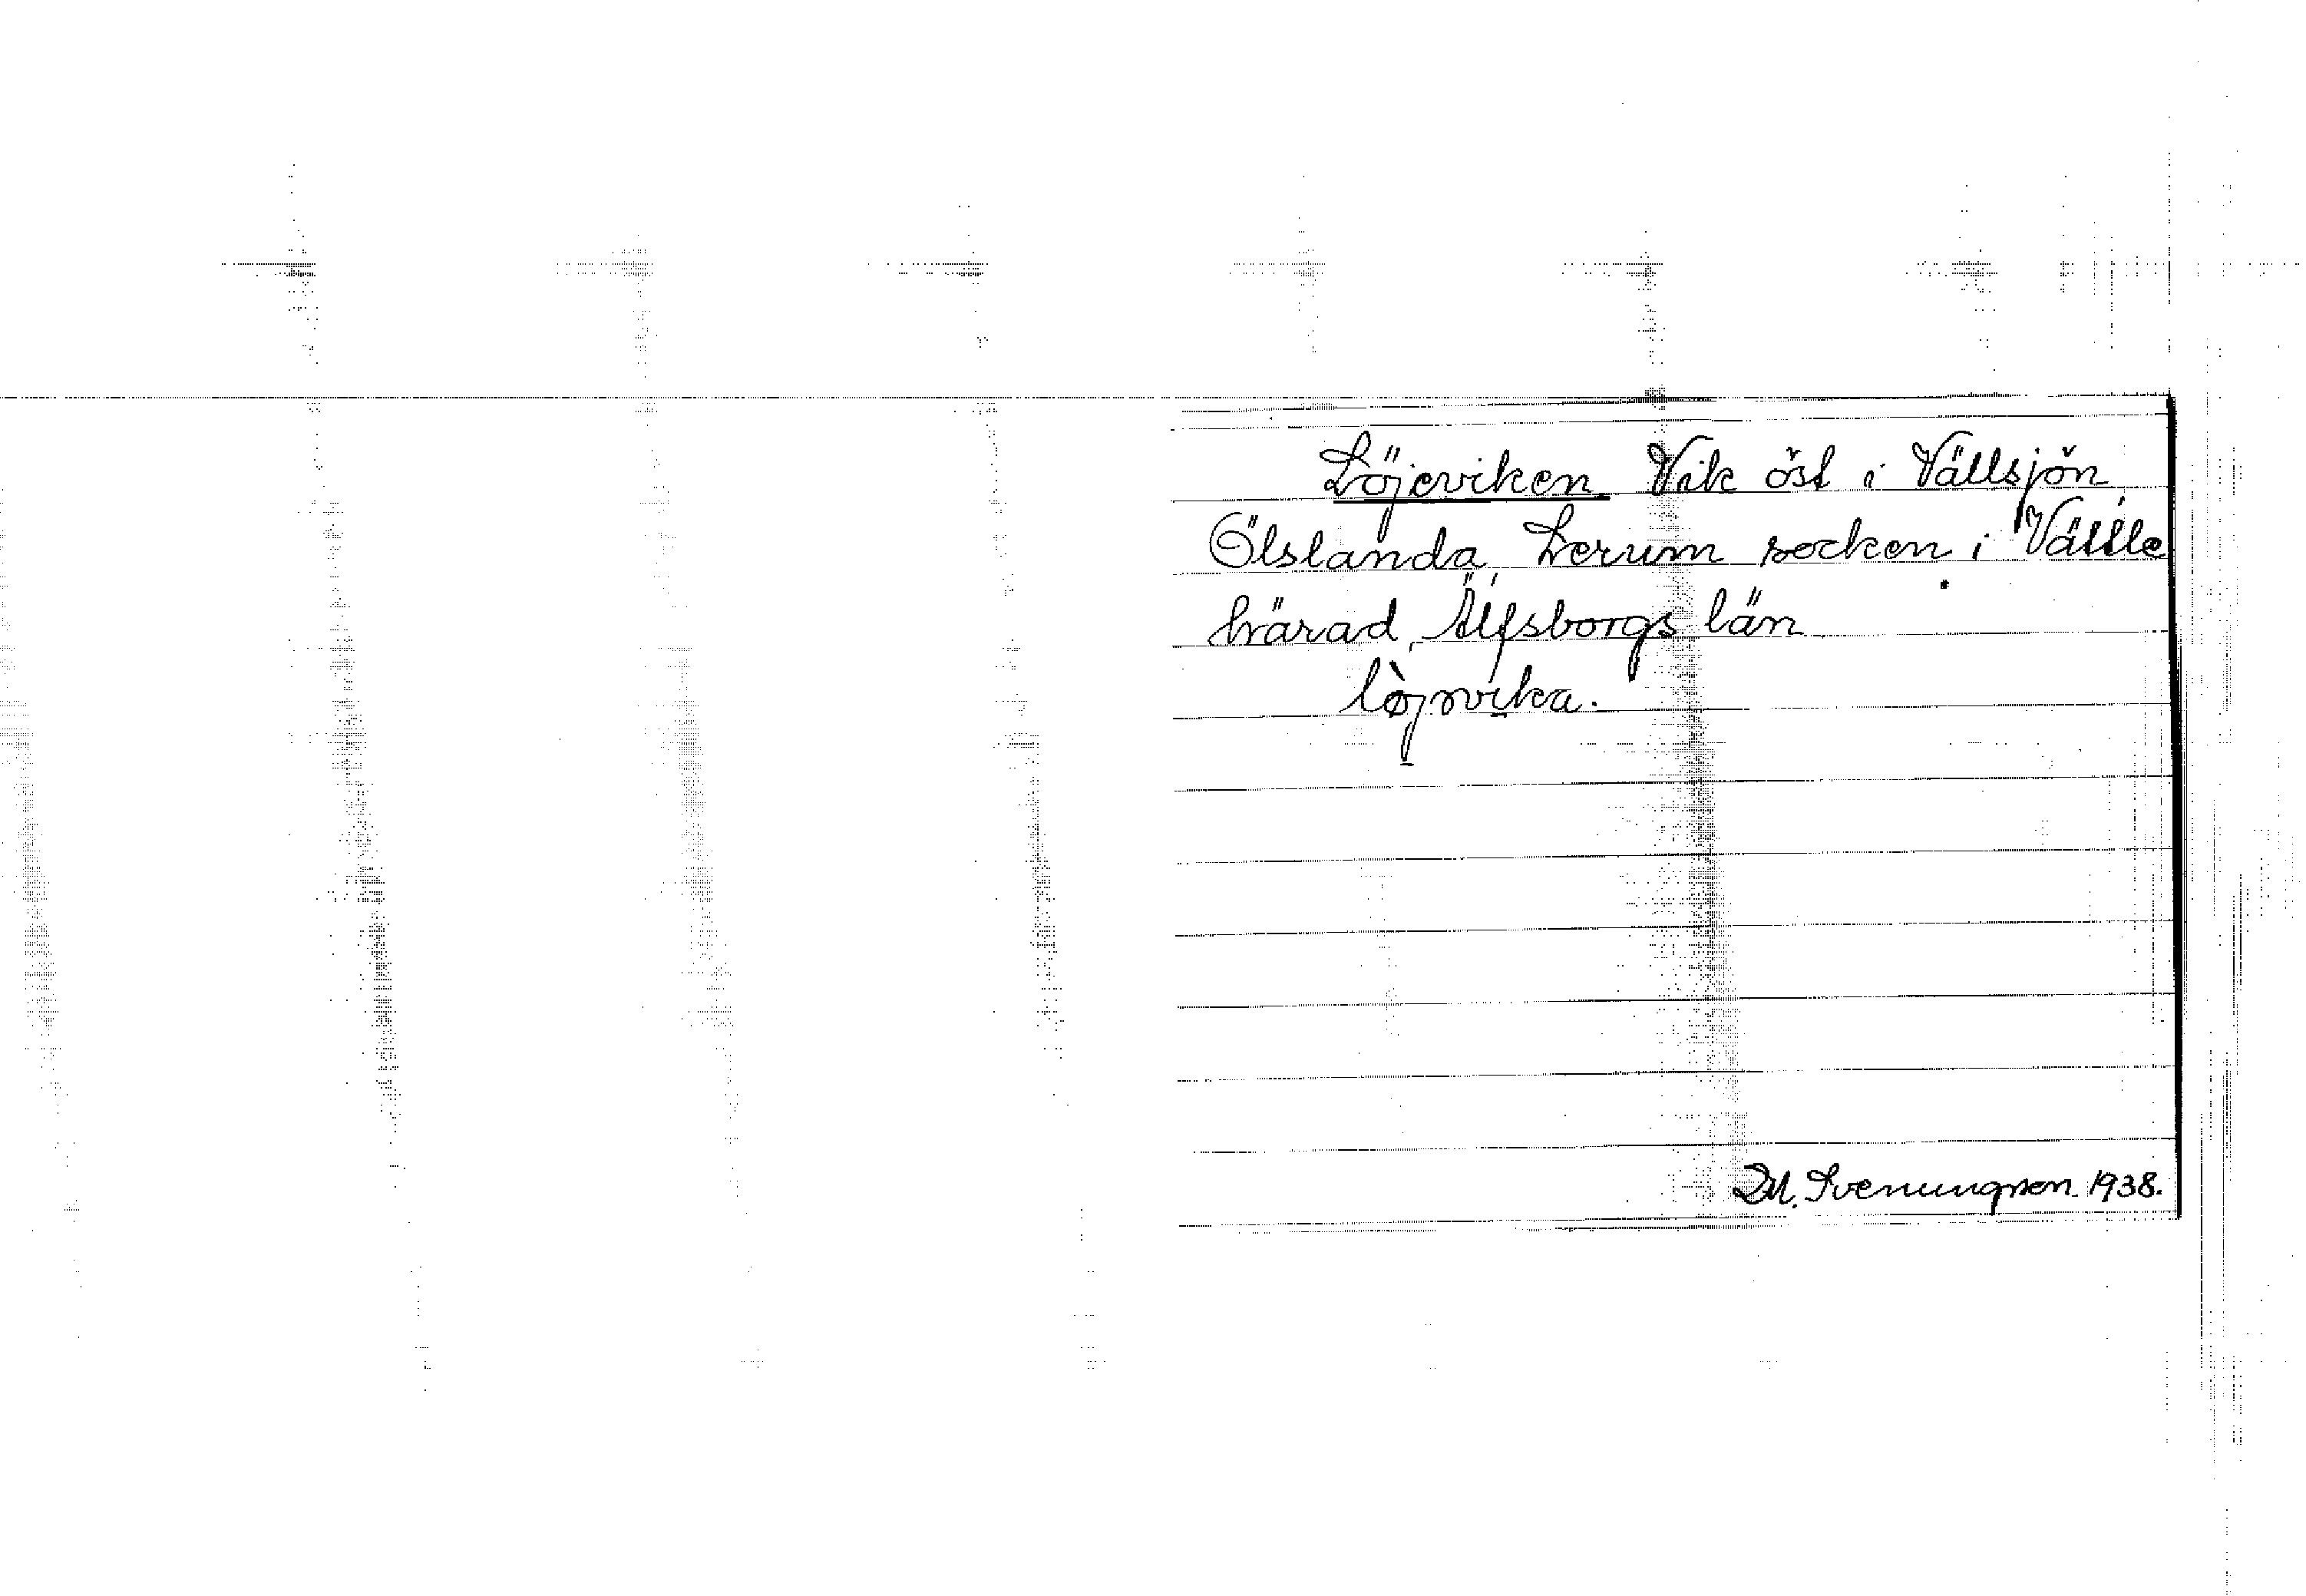 Löjeviken Vik öst i Vällsjön,
Ölslanda, Lerum socken i Vättle
härad, Älfsborgs län
lòjəvika.
D.M. Svenungsson 1938.